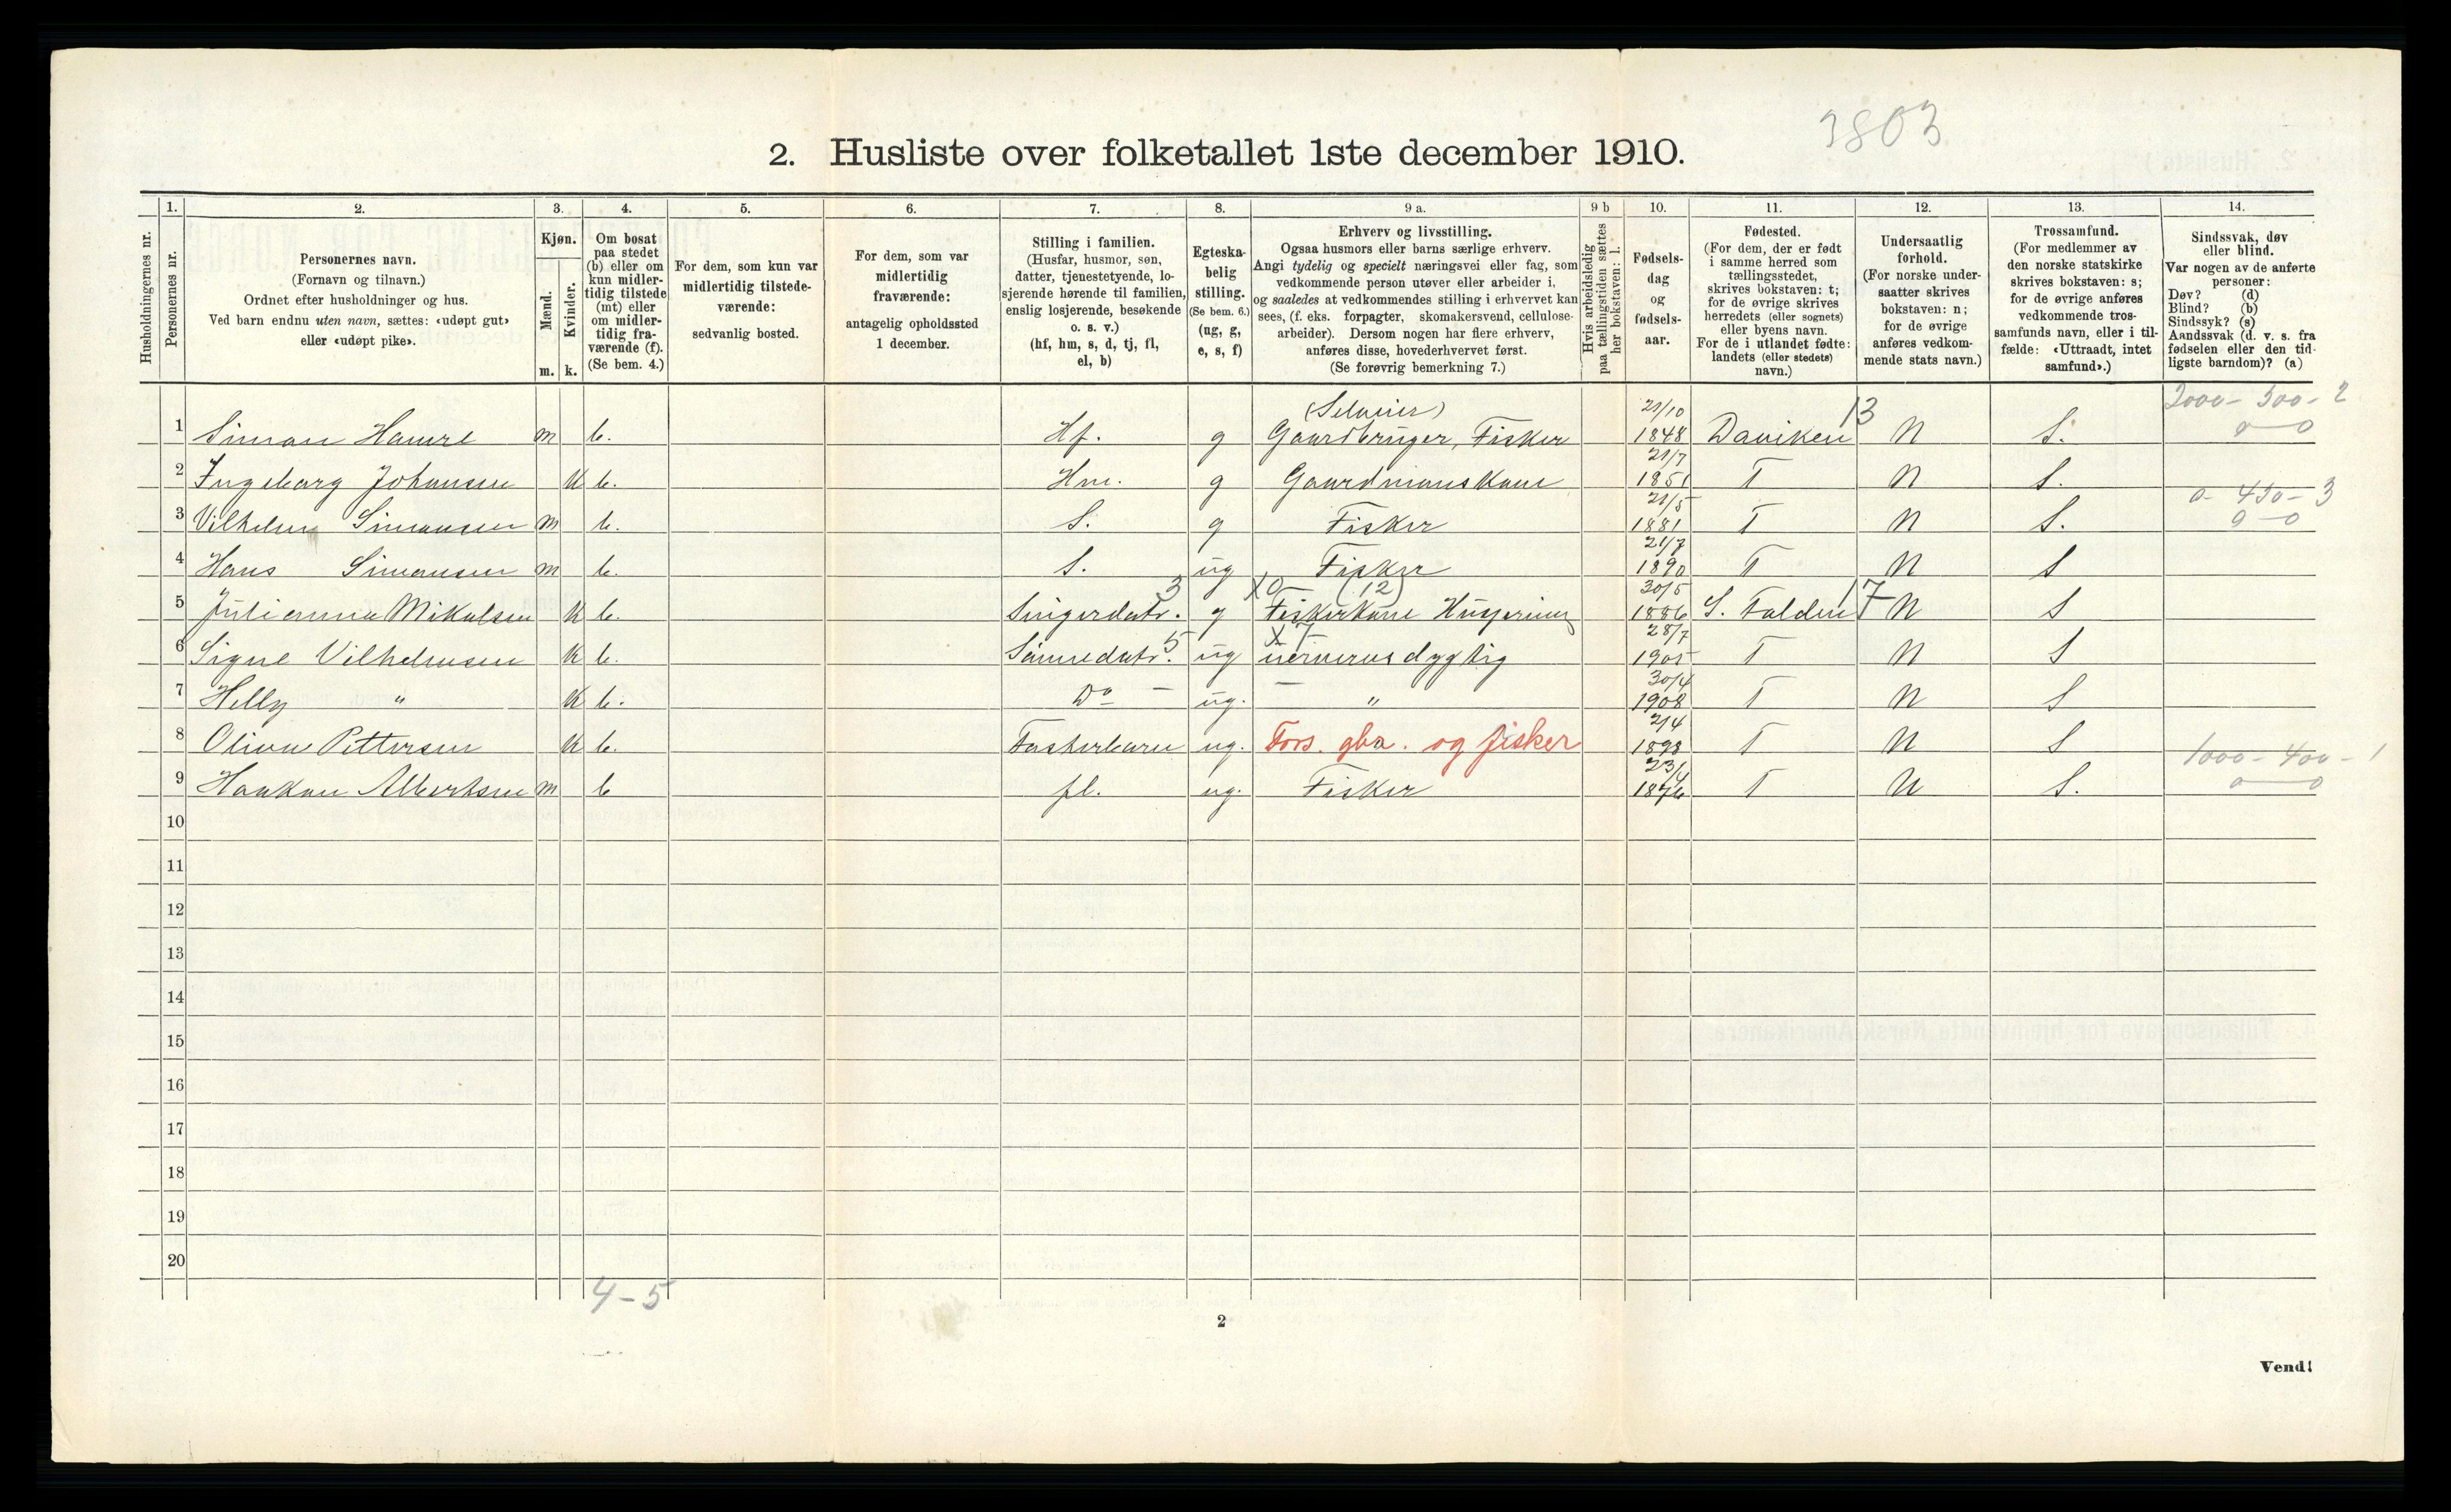 3803
2. Husliste over folketallet 1ste december 1910.
Husholdningernes nr.
1. Personernes nr.
2. Personernes navn.
(Fornavn og tilnavn.)
Ordnet efter husholdninger og hus.
Ved barn endnu uten navn, sættes: «udøpt gut»
eller «udøpt pike».
3. Kjøn.
Mænd. m.
Kvinder. k.
4. Om bosat
paa stedet
(b) eller om
kun midler-
tidig tilstede
(mt) eller
om midler-
tidig fra-
værende (f).
(Se bem. 4.)
5. For dem, som kun var
midlertidig tilstede-
værende:
sedvanlig bosted.
6. For dem, som var
midlertidig
fraværende:
antagelig opholdssted
1 december.
7. Stilling i familien.
(Husfar, husmor, søn,
datter, tjenestetyende, lo-
sjerende hørende til familien,
enslig losjerende, besøkende
o. s. v.)
(hf, hm, s, d, tj, fl,
el, b)
8. Egteska-
belig
stilling.
(Se bem. 6.)
(ug, g,
e, s, f)
9 a. Erhverv og livsstilling.
Ogsaa husmors eller barns særlige erhverv.
Angi tydelig og specielt næringsvei eller fag, som
vedkommende person utøver eller arbeider i,
og saaledes at vedkommendes stilling i erhvervet kan
sees, (f. eks. forpagter, skomakersvend, cellulose-
arbeider). Dersom nogen har flere erhverv,
anføres disse, hovederhvervet først.
(Se forøvrig bemerkning 7.)
9 b Hvis arbeidsledig
paa tællingstiden sættes
her bokstaven: l.
10. Fødsels-
dag
og
fødsels-
aar.
11. Fødested.
(For dem, der er født
i samme herred som
tællingsstedet,
skrives bokstaven: t;
for de øvrige skrives
herredets (eller sognets)
eller byens navn.
For de i utlandet fødte:
landets (eller stedets)
navn.)
12. Undersaatlig
forhold.
(For norske under-
saatter skrives
bokstaven: n;
for de øvrige
anføres vedkom-
mende stats navn.)
13. Trossamfund.
(For medlemmer av
den norske statskirke
skrives bokstaven: s;
for de øvrige anføres
vedkommende tros-
samfunds navn, eller i til-
fælde: «Uttraadt, intet
samfund».)
14. Sindssvak, døv
eller blind.
Var nogen av de anførte
personer:
Døv? (d)
Blind? (b)
Sindssyk? (s)
Aandssvak (d. v. s. fra
fødselen eller den tid-
ligste barndom)? (a)
(Selveier) 21/10 13 2000 - 300 - 2
1 Simon Hamre m b. Hf. g Gaardbruger, Fisker 1848 Daviken N S. 0 - 0
21/7
2 Ingeborg Johansen K b. Hm. g Gaardmanskone 1851 T N S.
21/5 0 - 450 - 3
3 Vilhelm Simonsen m b. S. g Fisker 1881 T N S. 0 - 0
21/7
4 Hans Simonsen m b. S. ug Fisker 1890 T N S
3 X0 (12) 30/5 17
5 Julianna Mikalsen K b. g Fiskerkone Husgerning 1886 S. Folden N S
5 28/7
6 Signe Vilhelmsen K b. Sønnedatr. ug uerverusdygtig 1905 T N S
30/4
7 Helly " K b. Do - ug. " 1908 T N S
2/4
8 Oliva Pettersen K b. Fosterbarn ug. Fors. gbr. og fisker 1898 T N S
23/4 1000 - 400 - 1
9 Haakon Albertsen m b fl. ug. Fisker 1876 T N S. 0 - 0
10
11
12
13
14
15
16
17
18
19
20
4-5
2
Vend!